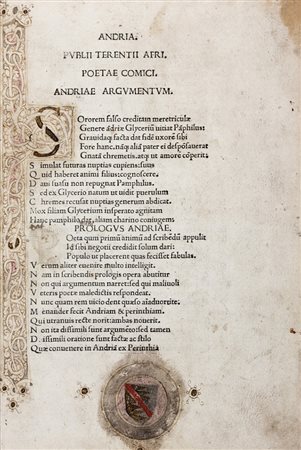 ANDRIA.
PVBLII TERENTII AFRI.
POETAE COMICI.
ANDRIAE ARGVMENTVM.
SOrorem falso creditam meretriculæ
Genere ãdriæ Glyceriũ uitiat Pãphilus:
Grauidaq; facta dat fidẽ uxorẽ sibi
Fore hanc. nãq; aliã pater ei despõsauerat
Gnatã chremetis. atq; ut amorẽ cõperit:
Simulat futuras nuptias cupiens: suus
Quid haberet animi filius: cognoscere.
Daui suasu non repugnat Pamphilus.
Sed ex Glycerio natum ut uidit puerulum
Chremes recusat nuptias generum abdicat.
Mox filiam Glycerium insperato agnitam
Hanc pamphilo dat, aliam charino coniugem
PROLOGVS ANDRIAE.
Oeta qum primũ animũ ad scribẽdũ appulit
Id sibi negotii credidit solum dari:
Populo ut placerent quas fecisset fabulas.
Verum aliter euenire multo intelligit.
Nam in scribendis prologis opera abutitur
Non qui argumentum narret: sed qui maliuoli
Veteris poetæ maledictis respondeat.
Nunc quam rem uicio dent quæso aïaduortite:
Menander fecit Andriam & perinthiam.
Qui utranuis recte norit: ambas nouerit.
Non ita dissimili sunt argumẽto: sed tamen
Dissimili oratione sunt factæ ac stilo
Quæ conuenere in Andriã ex Perinthia